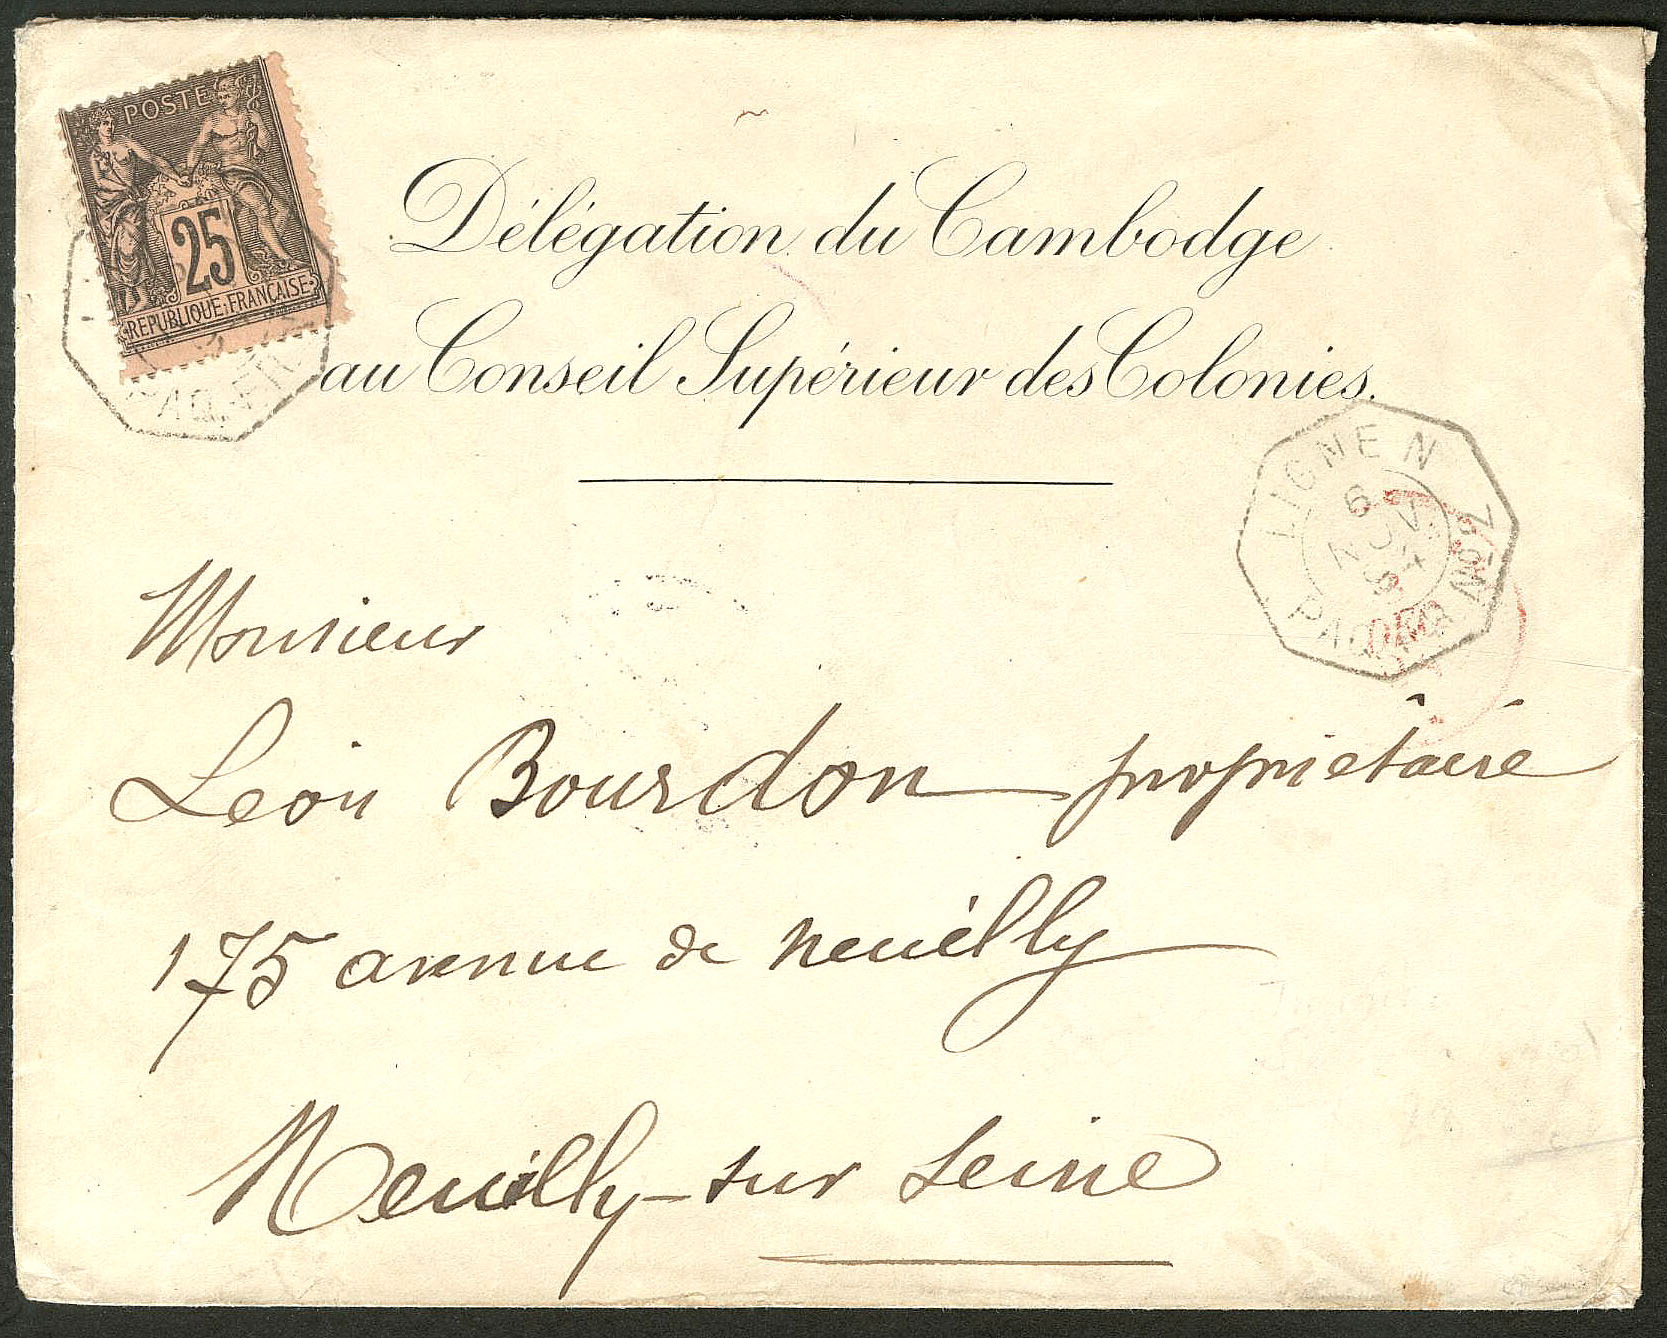 POSTE
25
REPUBLIQUE FRANÇAISE
Délégation du Cambodge
au Conseil Supérieur des Colonies.
LIGNE N
6
NOV
94
PAQ. FR. Nº 2
Monsieur
Léon Bourdon propriétaire
175 avenue de neuilly
Neuilly-sur Seine